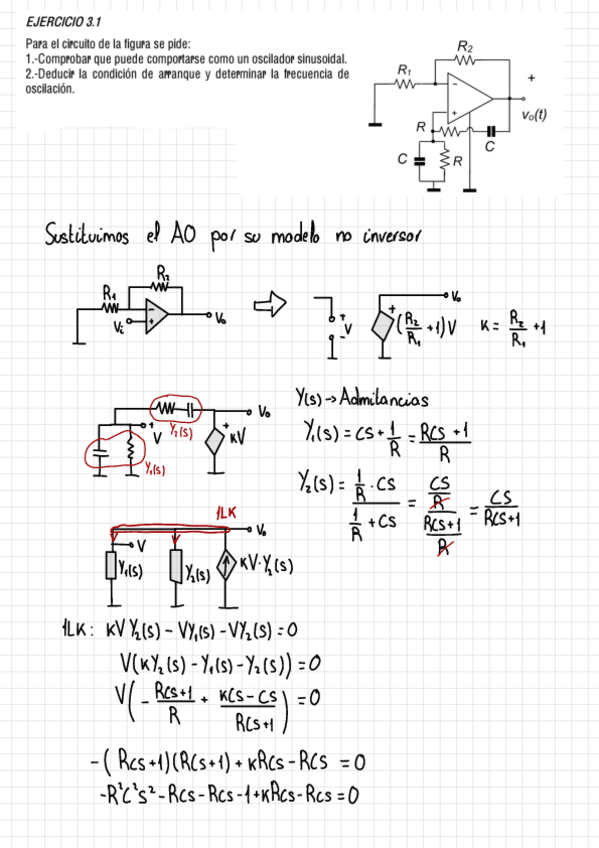 EJERCICIO 3.1
Para el circuito de la figura se pide:
1.-Comprobar que puede comportarse como un oscilador sinusoidal.
2.-Deducir la condición de arranque y determinar la frecuencia de
oscilación.
R₂
R₁
-
+
+
vₒ(t)
R
C
C
R
Sustituimos el AO por su modelo no inversor
R₂
R₁
Vi
Vo
+
V
-
+
(R₂/R₁ +1)V
Vo
K = R₂/R₁ +1
Y(s) → Admitancias
Vo
+
V
Y₂(s)
+
KV
Y₁(s)
Y₁(s) = CS + 1/R = (RCS +1)/R
Y₂(s) = (1/R · CS)/(1/R + CS) = (CS/R)/((RCS+1)/R) = CS/(RCS+1)
1LK
Vo
V
Y₁(s)
Y₂(s)
KV·Y₂(s)
1LK: KV Y₂(s) - VY₁(s) - VY₂(s) = 0
V(KY₂(s) - Y₁(s) - Y₂(s)) = 0
V(- (RCS+1)/R + (KCS - CS)/(RCS+1)) = 0
-(RCS+1)(RCS+1) + KRCS - RCS = 0
-R²C²S² - RCS - RCS - 1 + KRCS - RCS = 0